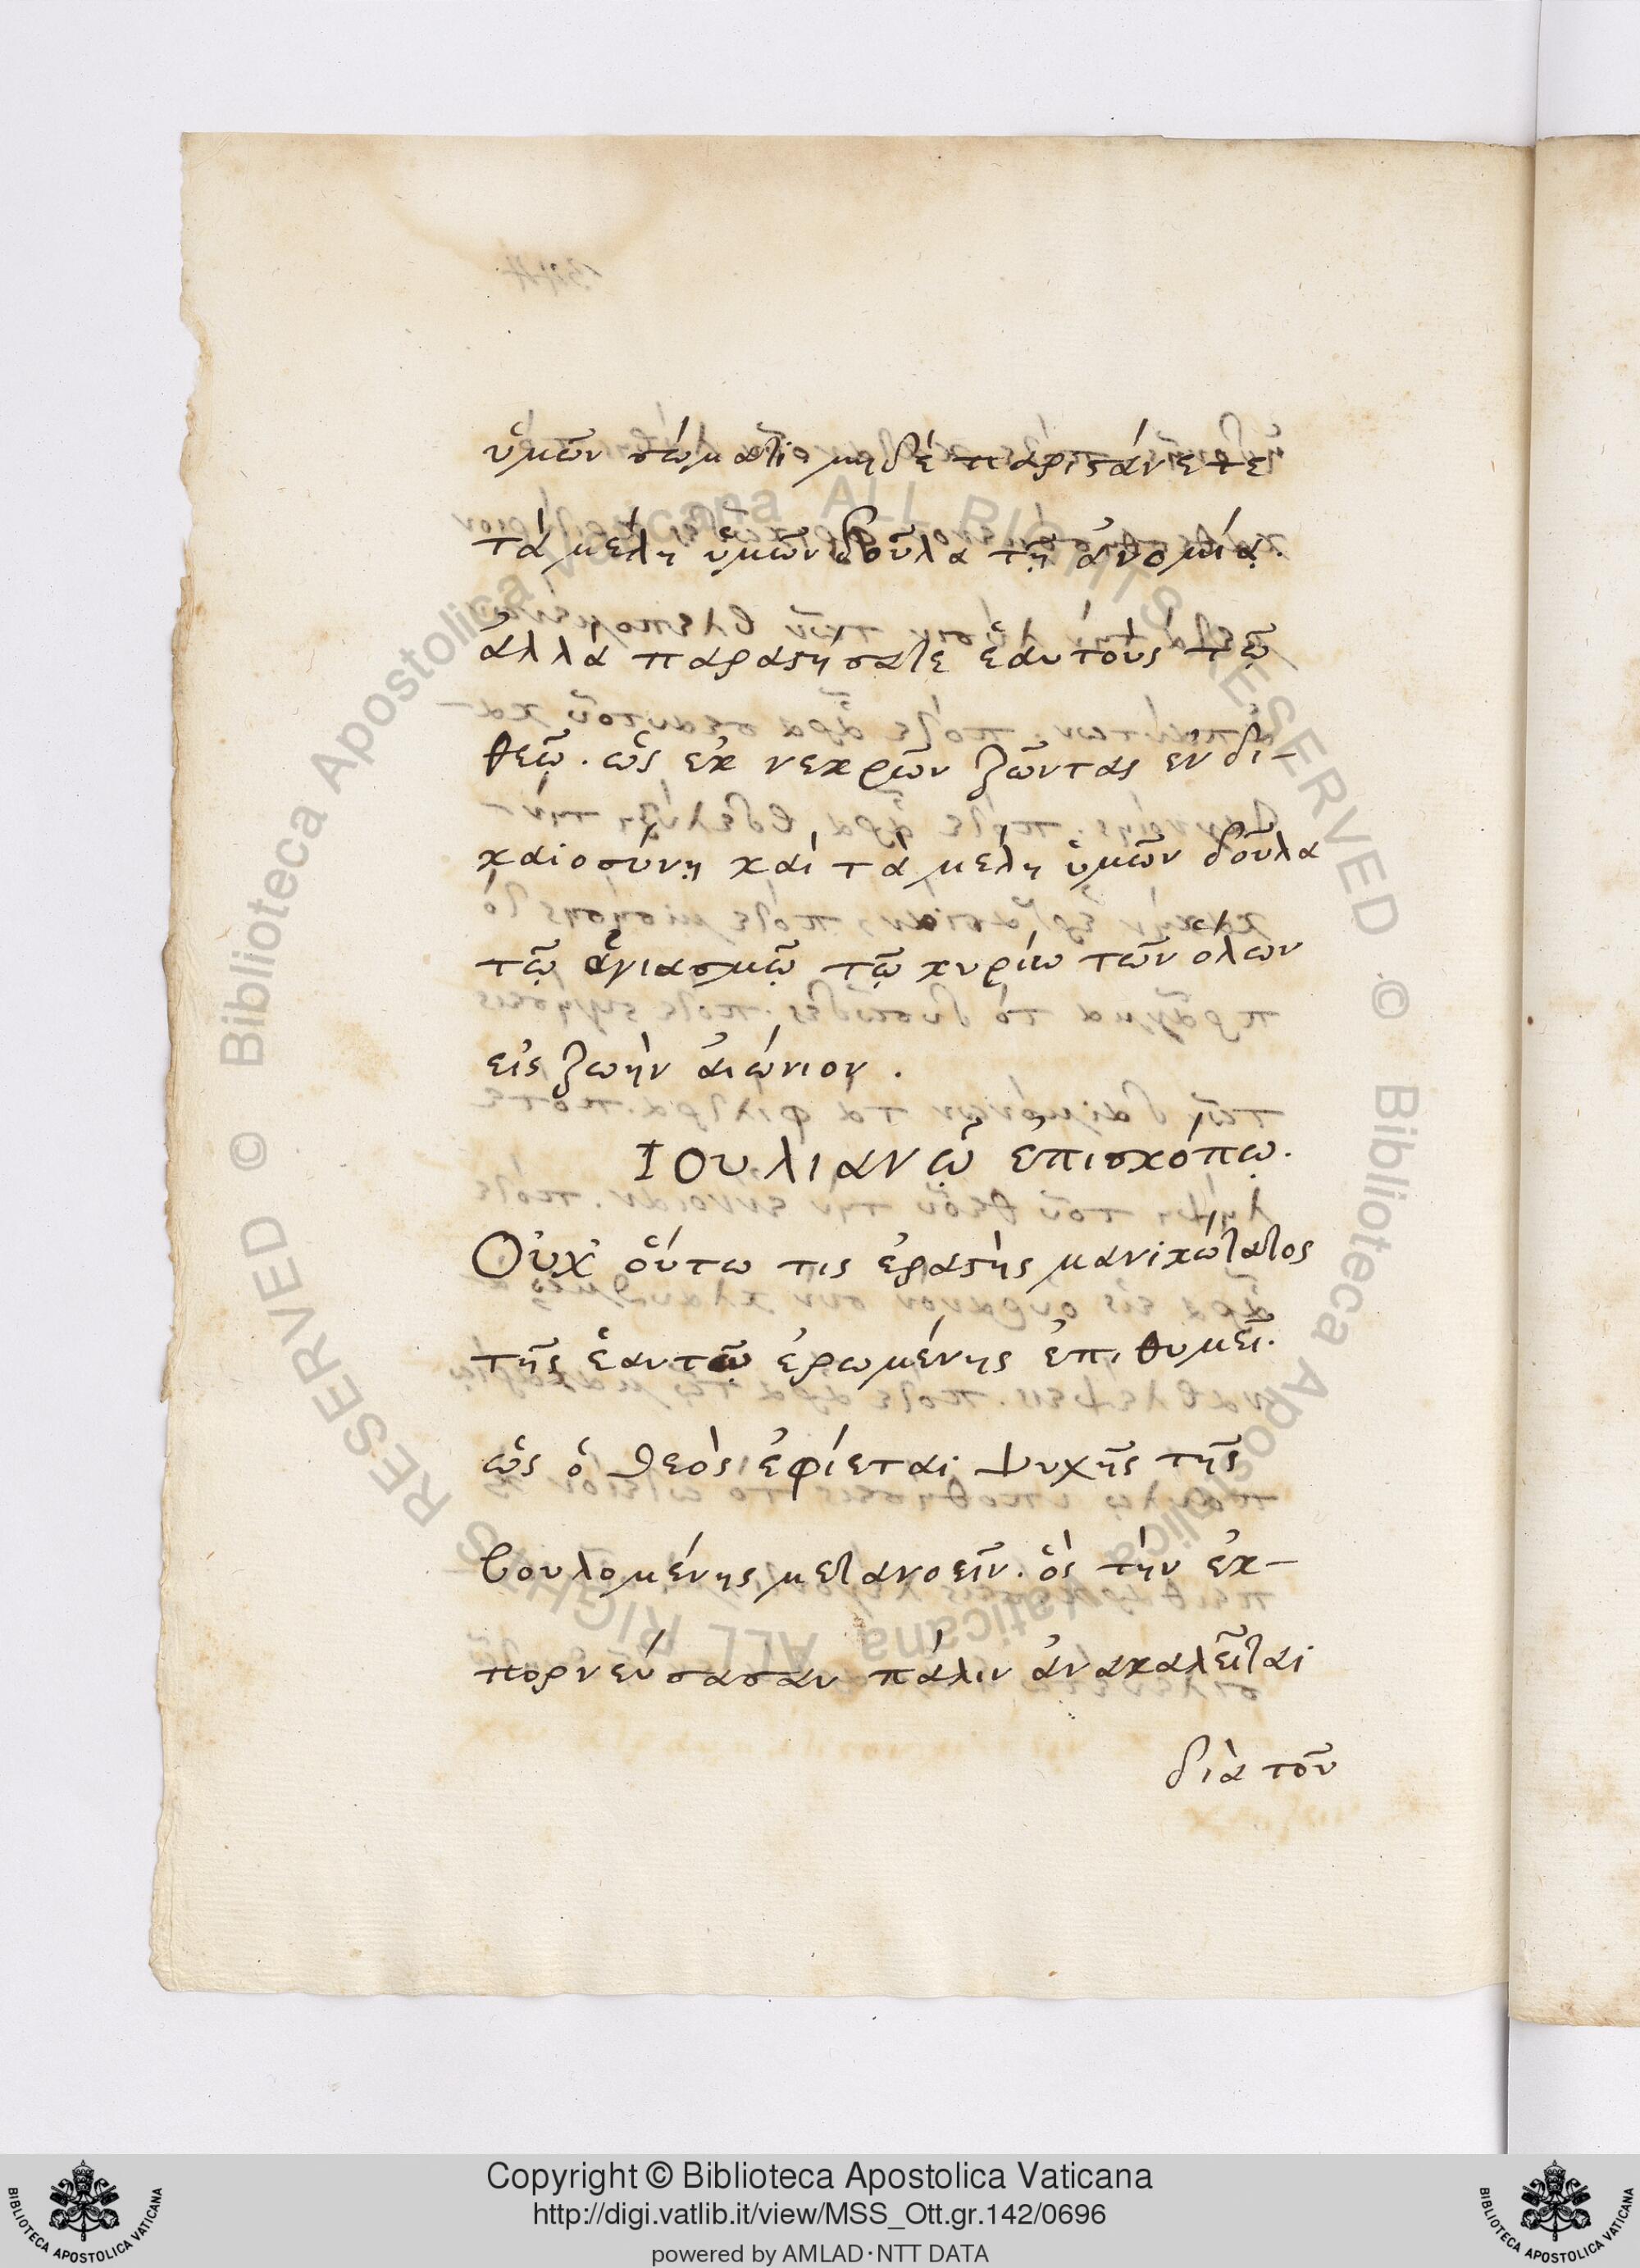 ὑμῶν σώματι. μηδὲ παριστάνετε
τὰ μέλη ὑμῶν δοῦλα τῇ ἀνομίᾳ.
ἀλλὰ παραστήσατε ἑαυτοὺς τῷ
θεῷ. ὡς ἐκ νεκρῶν ζῶντας ἐν δι-
καιοσύνῃ καὶ τὰ μέλη ὑμῶν δοῦλα
τῷ ἁγιασμῷ τῷ κυρίω τῶν ὅλων
εἰς ζωὴν αἰώνιον.
Ιουλιανῷ ἐπισκόπῳ.
Οὐχ οὕτω τις ἐραστὴς μανικώτατος
τῆς ἑαυτῷ ἐρωμένης ἐπιθυμεῖ.
ὡς ὁ θεὸς ἐφίεται ψυχῆς τῆς
βουλομένης μετανοεῖν. ὃς τὴν ἐκ-
πορνεύσασαν πάλιν ἀνακαλεῖται
διὰ τοῦ
© Biblioteca Apostolica Vaticana ALL RIGHTS RESERVED
© Biblioteca Apostolica Vaticana ALL RIGHTS RESERVED
Copyright © Biblioteca Apostolica Vaticana
http://digi.vatlib.it/view/MSS_Ott.gr.142/0696
powered by AMLAD·NTT DATA
BIBLIOTECA APOSTOLICA VATICANA
BIBLIOTECA APOSTOLICA VATICANA